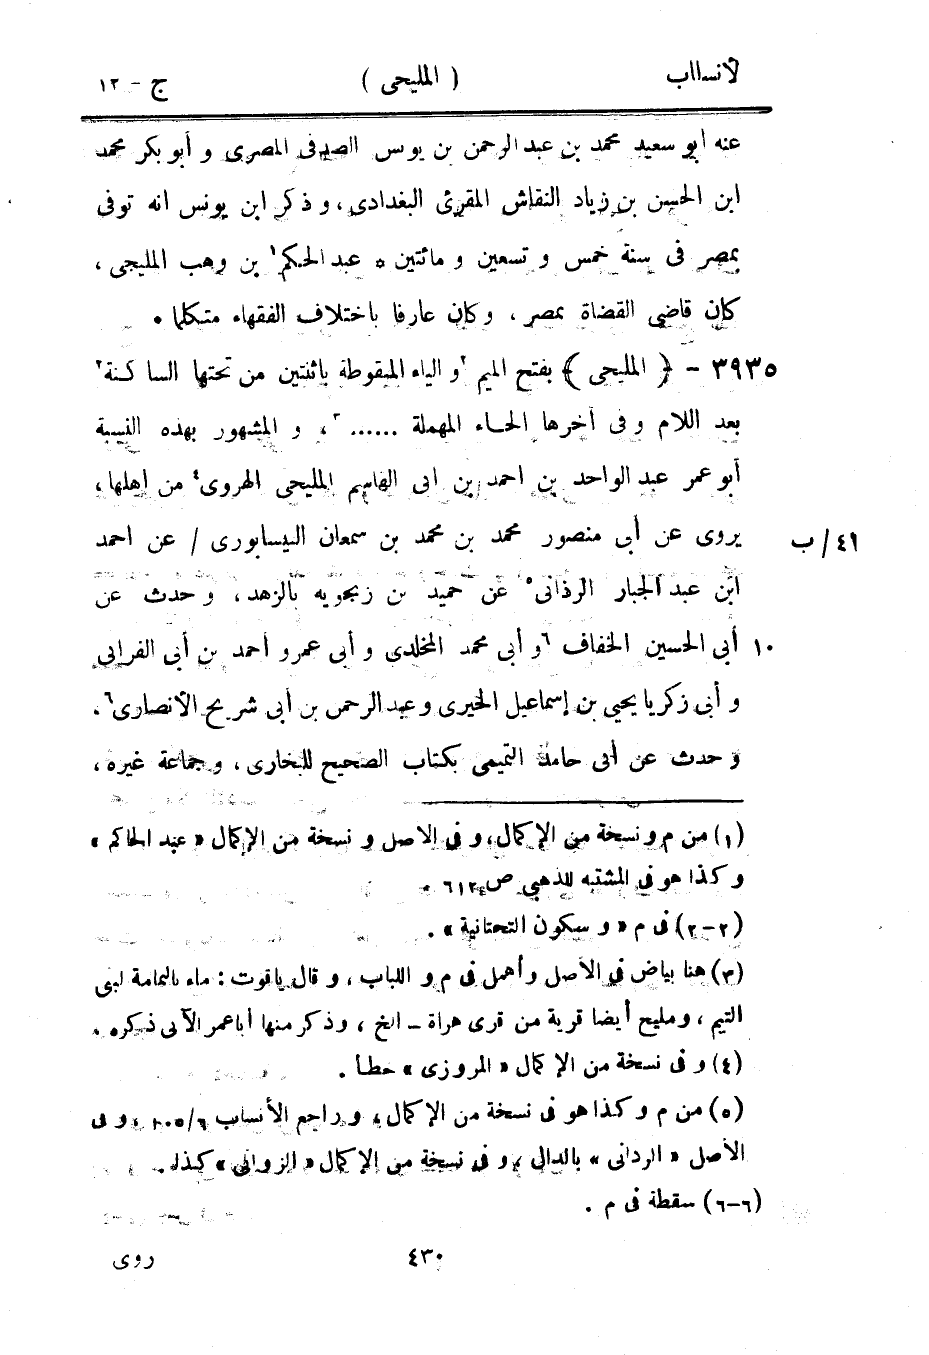 الأنساب ( المليحى ) ج - ١٢
عنه أبو سعيد محمد بن عبد الرحمن بن يونس الصدفى المصرى و أبو بكر محمد
ابن الحسن بن زياد النقاش المقرئ البغدادى، و ذكر ابن يونس انه توفى
بمصر فى سنة خمس و تسعين و مائتين * عبد الحكم١ بن وهب المليجى ،
كان قاضى القضاة بمصر ، وكان عارفا باختلاف الفقهاء متكلما .
٣٩٣٥ - ﴿ المليحى ﴾ بفتح الميم ٢و الياء المنقوطة باثنتين من تحتها الساكنة٢
بعد اللام و فى آخرها الحاء المهملة ......٣، و المشهور بهذه النسبة
أبو عمر عبد الواحد بن احمد بن ابى القاسم المليحى الهروى٤ من اهلها ،
يروى عن أبى منصور محمد بن محمد بن سمعان النيسابورى / عن احمد ٤١/ب
ابن عبد الجبار الرذانى٥ عن حميد بن زنجويه بالزهد، و حدث عن
١٠ أبى الحسين الخفاف ٦و أبى محمد المخلدى و أبى عمرو أحمد بن أبى الفراتى
و أبى زكريا يحيى بن إسماعيل الحيرى و عبد الرحمن بن أبى شريح الأنصارى٦.
و حدث عن أبى حامد التميمى بكتاب الصحيح للبخارى، و جماعة غيره ،
(١) من م و نسخة من الإكمال، و فى الاصل و نسخة من الإكمال « عبد الحاكم »
و كذا هو فى المشتبه للذهبى ص ٦١٢ .
(٢-٢) فى م « و سكون التحتانية » .
(٣) هنا بياض فى الأصل وأهمل فى م و اللباب ، و قال ياقوت : ماء باليمامة لبنى
التيم ، ومليح أيضا قرية من قرى هراة - الخ ، وذكر منها أبا عمر الآتى ذكره .
(٤) و فى نسخة من الإكمال « المروزى » خطأ .
(٥) من م و كذا هو فى نسخة من الإكمال، و راجع الأنساب ٦/١٠٥ ، و فى
الأصل « الردانى » بالدال ، و فى نسخة من الإكمال « الزوانى » كذا .
(٦-٦) سقطة فى م .
٤٣٠ روى